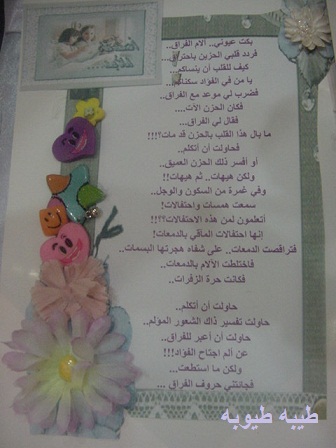 بكت عيوني.. آلام الفراق..
فردد قلبي الحزين باحتراق..
كيف للقلب أن ينساكم..
يا من في الفؤاد سكناكم..
فضرب لي موعد مع الفراق..
فكان الحزن الآت....
فقال لي الفراق...
ما بال هذا القلب بالحزن قد مات؟!!!
فحاولت أن أتكلم..
أو أفسر ذلك الحزن العميق..
ولكن هيهات.. ثم هيهات!!
وفي غمرة من السكون والوجل..
سمعت همسات واحتفالات!
أتعلمون لمن هذه الاحتفالات؟؟!!
إنها احتفالات المآقي بالدمعات!
فتراقصت الدمعات.. على شفاه هجرتها البسمات..
فاختلطت الآلام بالدمعات..
فكانت حرة الزفرات..
حاولت أن أتكلم..
حاولت تفسير ذاك الشعور المؤلم..
حاولت أن أعبر للفراق..
عن ألم اجتاح الفؤاد!!!
ولكن ما استطعت...
فجائتني حروف الفراق ...
طيبه طيوبه